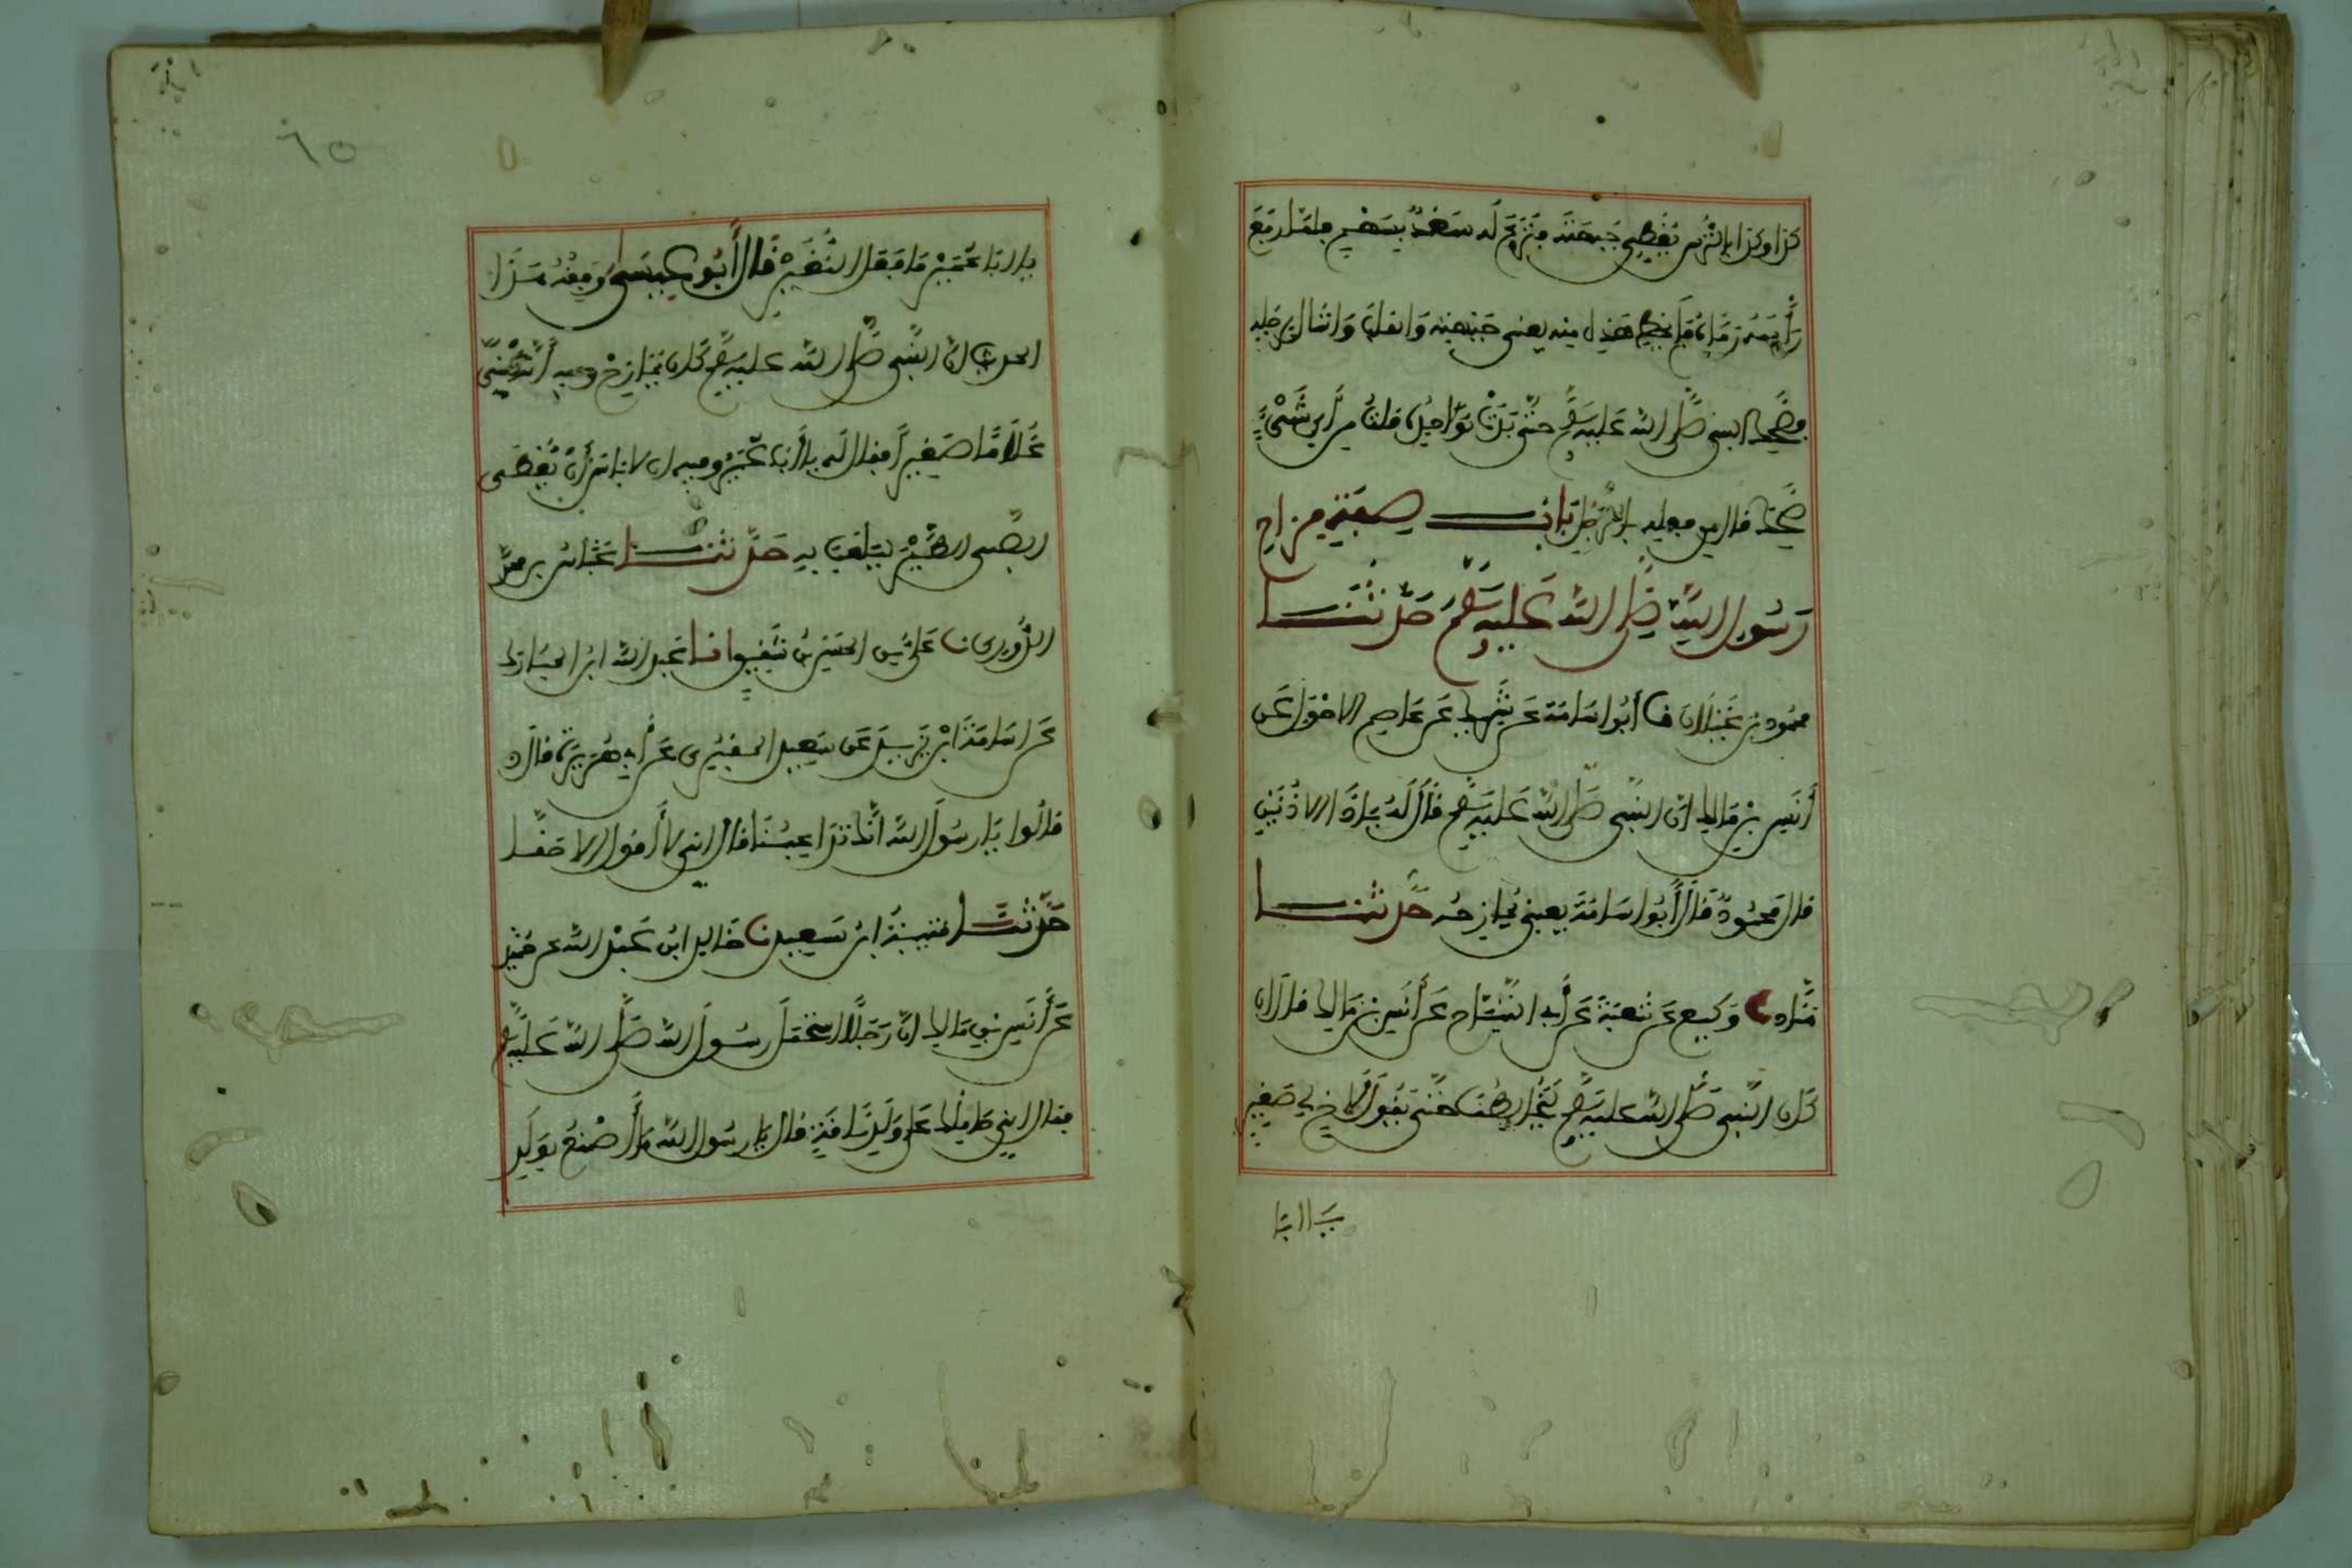 كذا وكذا بالترس يغطي جبهته فنزع له سعد بسهم فلما رفع
رأسه رماه فلم يخط هذه منه يعني جبهته وانقلب وشال برجله
فضحك النبي صلى الله عليه وسلم حتى بدت نواجذه قلت من أي شيء
ضحك قال من فعله بالرجل باب صفة مزاح
رسول الله صلى الله عليه وسلم حدثنا
محمود بن غيلان نا أبو اسامة عن شريك عن عاصم الاحول عن
أنس بن مالك ان النبي صلى الله عليه وسلم قال له يا ذا الاذنين
قال محمود قال أبو اسامة يعني يمازحه حدثنا
هناد نا وكيع عن شعبة عن أبي التياح عن أنس بن مالك قال ان
كان النبي صلى الله عليه وسلم ليخالطنا حتى يقول لاخ لي صغير
يا ابا
يا ابا عمير ما فعل النغير قال أبو عيسى وفقه هذا
الحديث ان النبي صلى الله عليه وسلم كان يمازح وفيه أنه كنى
غلاما صغيرا فقال له يا أبا عمير وفيه ان لا باس أن يعطى
الصبي الطير يلعب به حدثنا عباس بن محمد
الدوري نا علي بن الحسن بن شقيق انا عبد الله ابن المبارك
عن اسامة ابن زيد عن سعيد المقبري عن أبي هريرة قال
قالوا يا رسول الله انك تداعبنا قال اني لا أقول الا حقا
حدثنا قتيبة ابن سعيد نا خالد ابن عبد الله عن حميد
عن أنس بن مالك ان رجلا استحمل رسول الله صلى الله عليه وسلم
فقال اني حاملك على ولد ناقة قال يا رسول الله ما أصنع بولد
٦٥